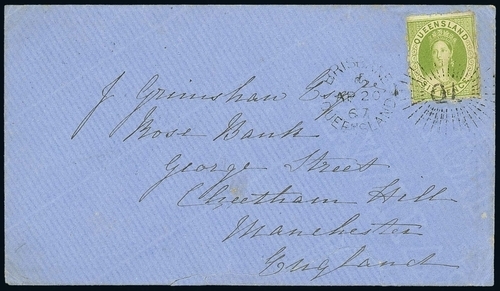 QUEENSLAND
BRISBANE
AP 26
67
QUEENSLAND
J Grimshaw Esqr
Rose Bank
George Street
Cheetham Hill
Manchester
England